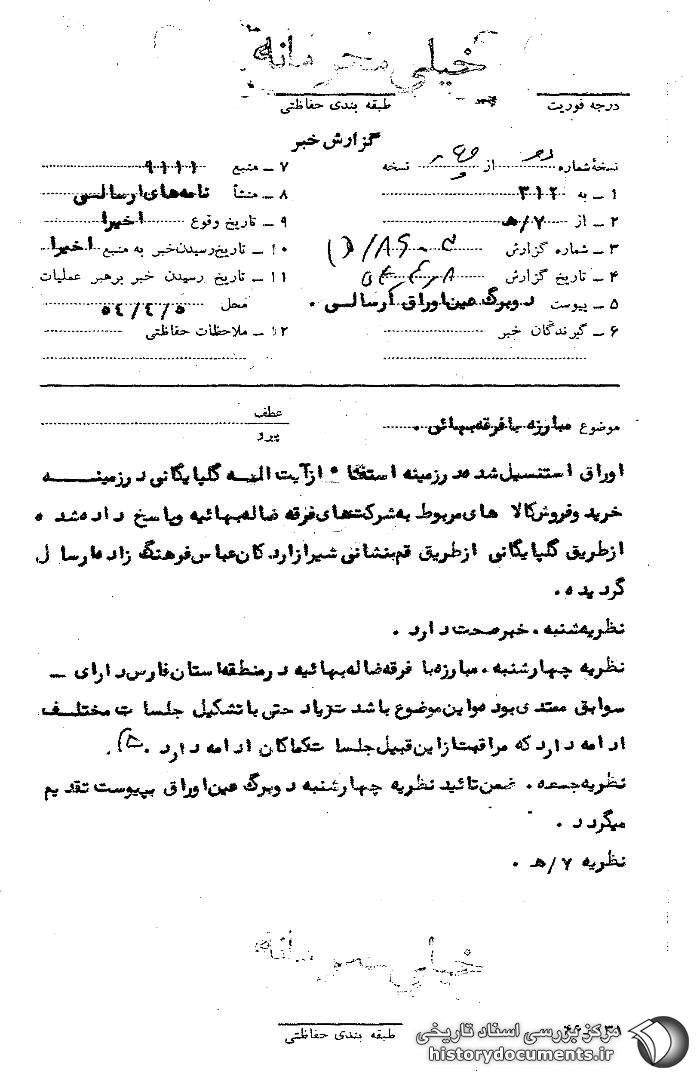 خیلی محرمانه
درجه فوریت
طبقه بندی حفاظتی
گزارش خبر
نسخهٔ شماره از نسخه
۱ ـ به ۳۱۲
۲ ـ از ۷/ه‍
۳ ـ شماره گزارش
۴ ـ تاریخ گزارش
۵ ـ پیوست دوبرگ عین اوراق ارسالی .
۶ ـ گیرندگان خبر
۷ ـ منبع ۹۱۱۱
۸ ـ منشأ نامه های ارسالی
۹ ـ تاریخ وقوع اخیرا
۱۰ ـ تاریخ رسیدن خبر به منبع اخیرا
۱۱ ـ تاریخ رسیدن خبر برهبر عملیات
محل ۵۴/۴/۵
۱۲ ـ ملاحظات حفاظتی
موضوع مبارزه با فرقه بهائی .
عطف
پیرو
اوراق استنسیل شده در زمینه استفتاء از آیت الله گلپایگانی در زمینه
خرید و فروش کالا های مربوط به شرکتهای فرقه ضاله بهائیه و پاسخ داده شده
از طریق گلپایگانی از طریق قم بنشانی شیراز اردکان عباس فرهنگ زاده ارسال
گردیده .
نظریه شنبه . خبر صحت دارد .
نظریه چهارشنبه . مبارزه با فرقه ضاله بهائیه در منطقه استان فارس دارای ـ
سوابق ممتدی بوده و این موضوع باشدت زیاد حتی با تشکیل جلسات مختلف
ادامه دارد که مراقبت از این قبیل جلسات کماکان ادامه دارد .
نظریه جمعه . ضمن تائید نظریه چهارشنبه دوبرگ عین اوراق بپیوست تقدیم
میگردد .
نظریه ۷/ه‍ .
خیلی محرمانه
طبقه بندی حفاظتی
مرکز بررسی اسناد تاریخی
historydocuments.ir